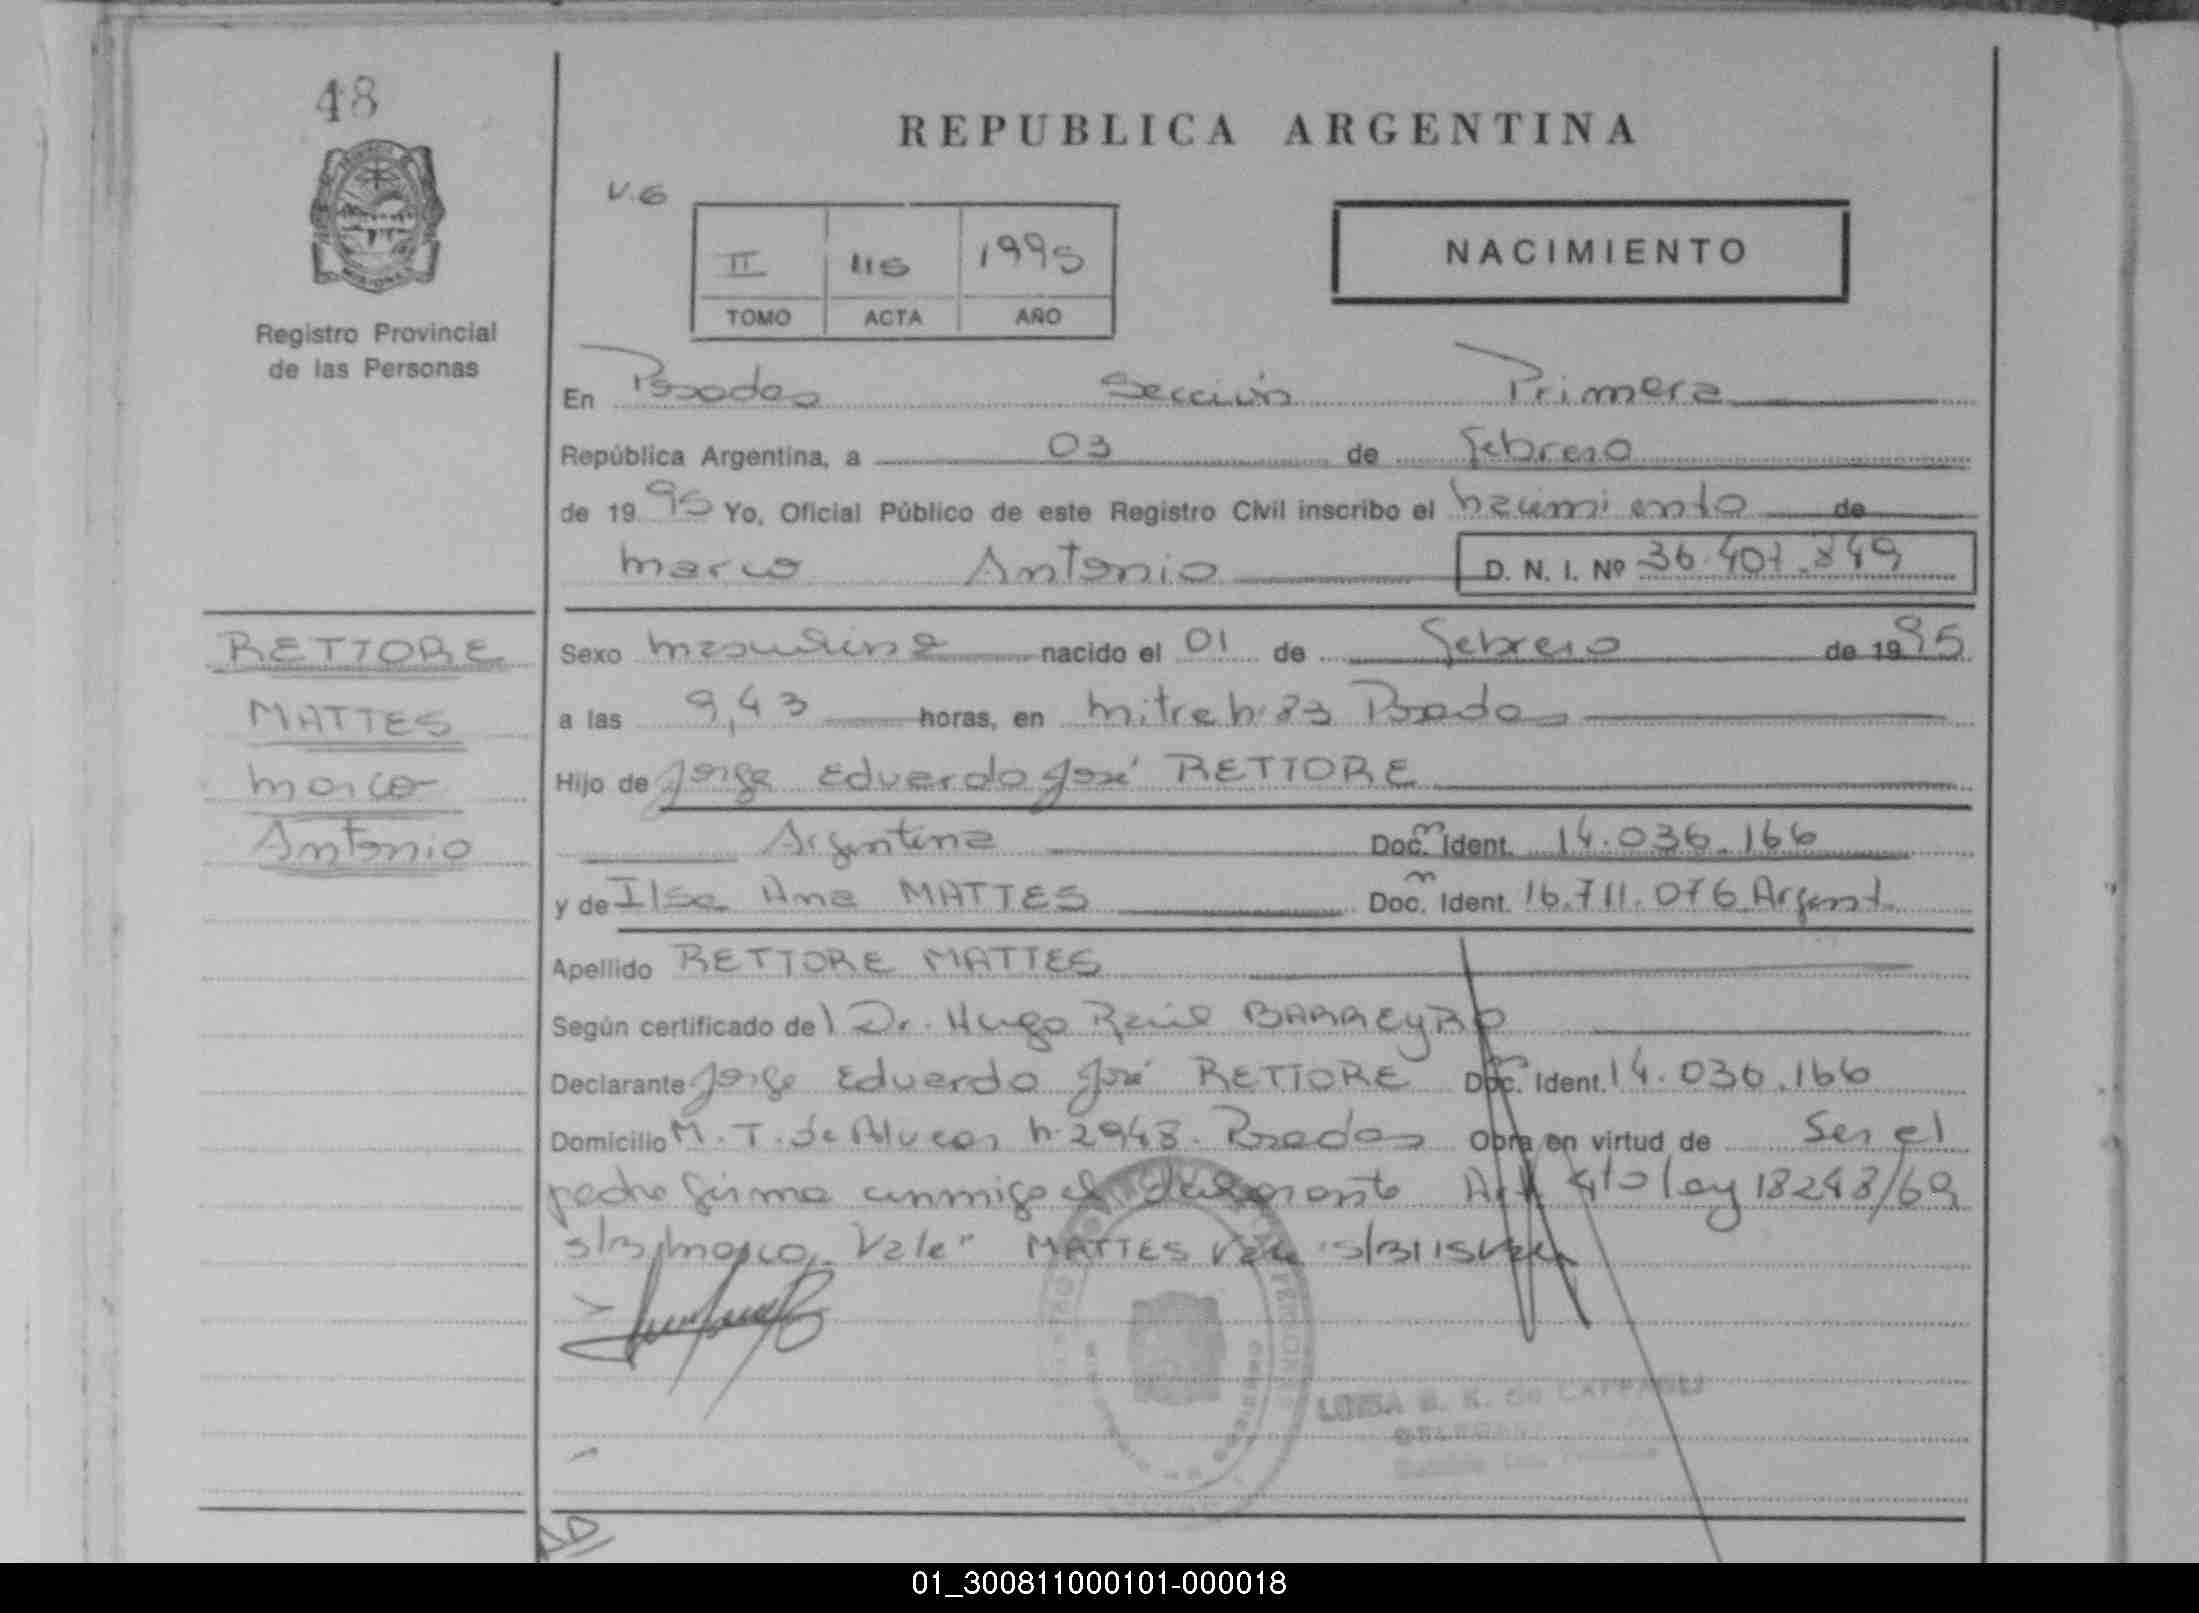 48
REPUBLICA ARGENTINA
V.6
II 115 1995
TOMO ACTA AÑO
NACIMIENTO
Registro Provincial
de las Personas
En Posadas Sección Primera
República Argentina, a 03 de febrero
de 1995 Yo, Oficial Público de este Registro Civil inscribo el nacimiento de
Marco Antonio D. N. I. Nº 36.407.849
RETTORE
MATTES
Marco
Antonio
Sexo masculino nacido el 01 de febrero de 1995
a las 9,43 horas, en Mitre n· 83 Posadas
Hijo de Jorge Eduardo José RETTORE
Argentina Doc. Ident. 14.036.166
y de Ilsa Ana MATTES Doc. Ident. 16.711.076 Argent.
Apellido RETTORE MATTES
Según certificado del Dr. Hugo Raúl BARREYRO
Declarante Jorge Eduardo José RETTORE Doc. Ident. 14.036.166
Domicilio M. T. de Alvear n· 2948. Posadas Obra en virtud de Ser el
padre firma conmigo el declarante Art 4to ley 18248/69
s/r Marco, Vale" MATTES Vale
LUISA E. K. de
01_300811000101-000018